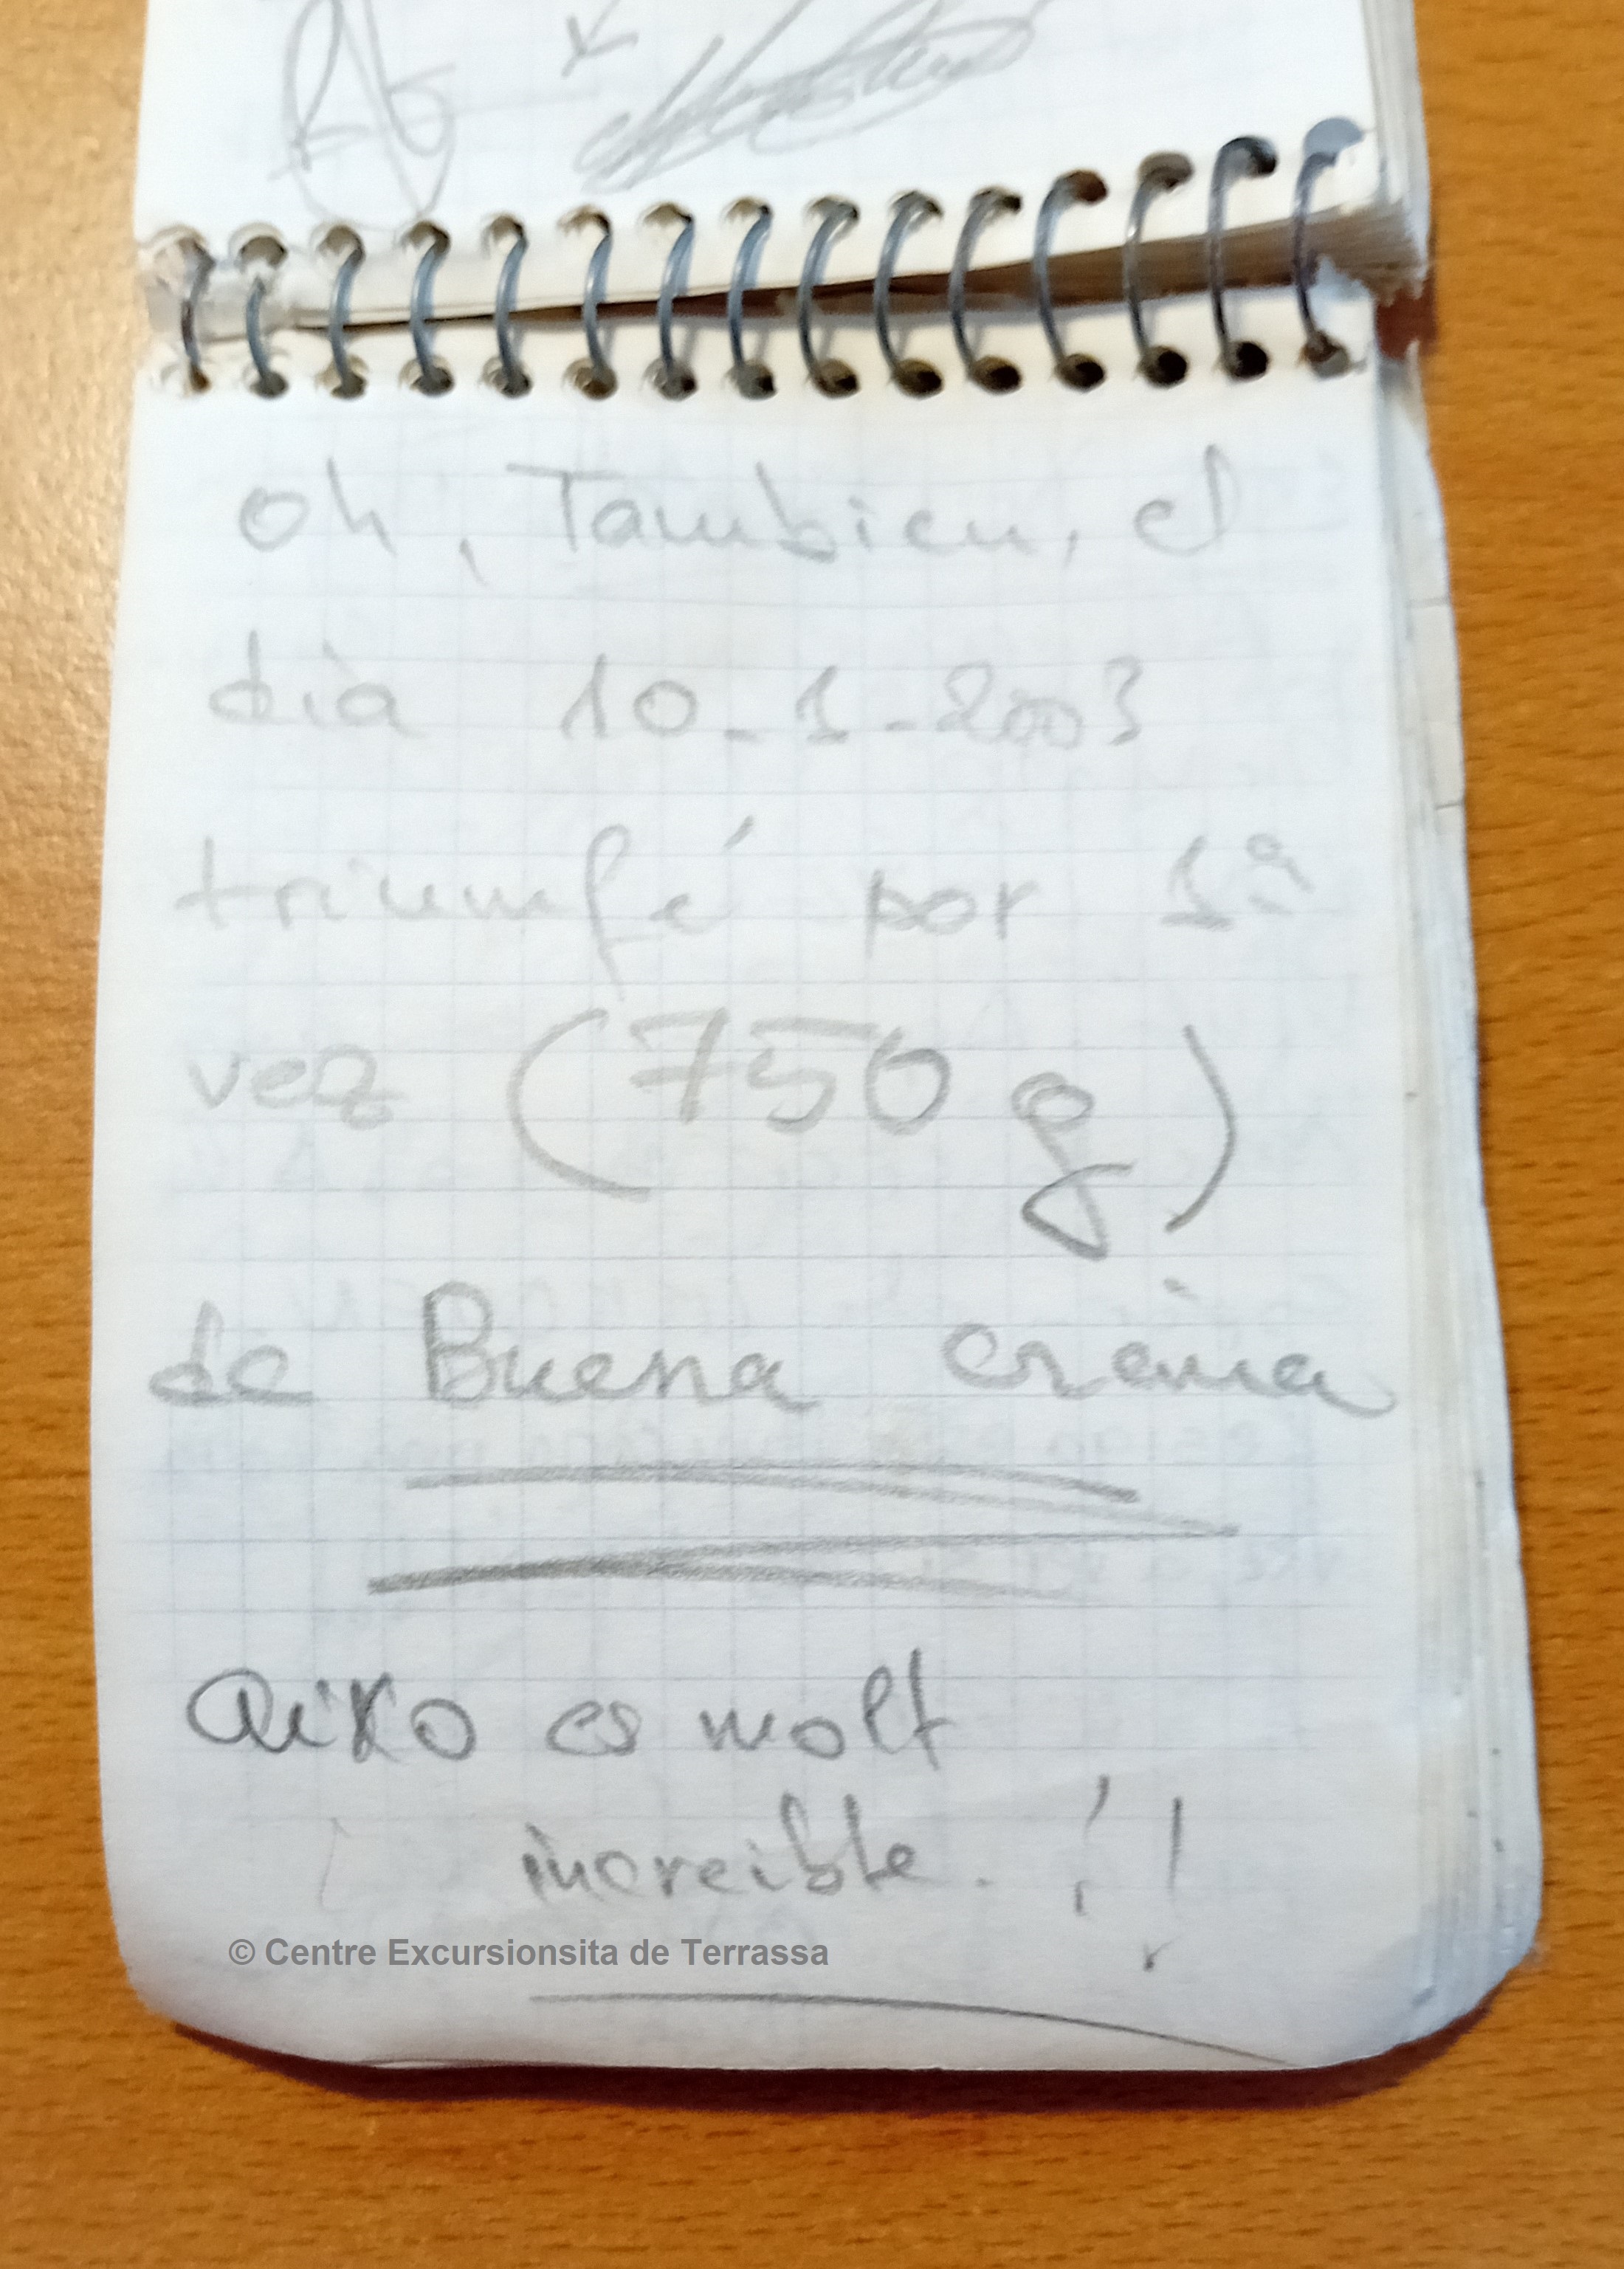 oh, Tambien, el
dià 10-1-2003
triumfé por 1ª
vez (750 g)
de Buena crema
aiko es molt
increible. ¡!
© Centre Excursionsita de Terrassa